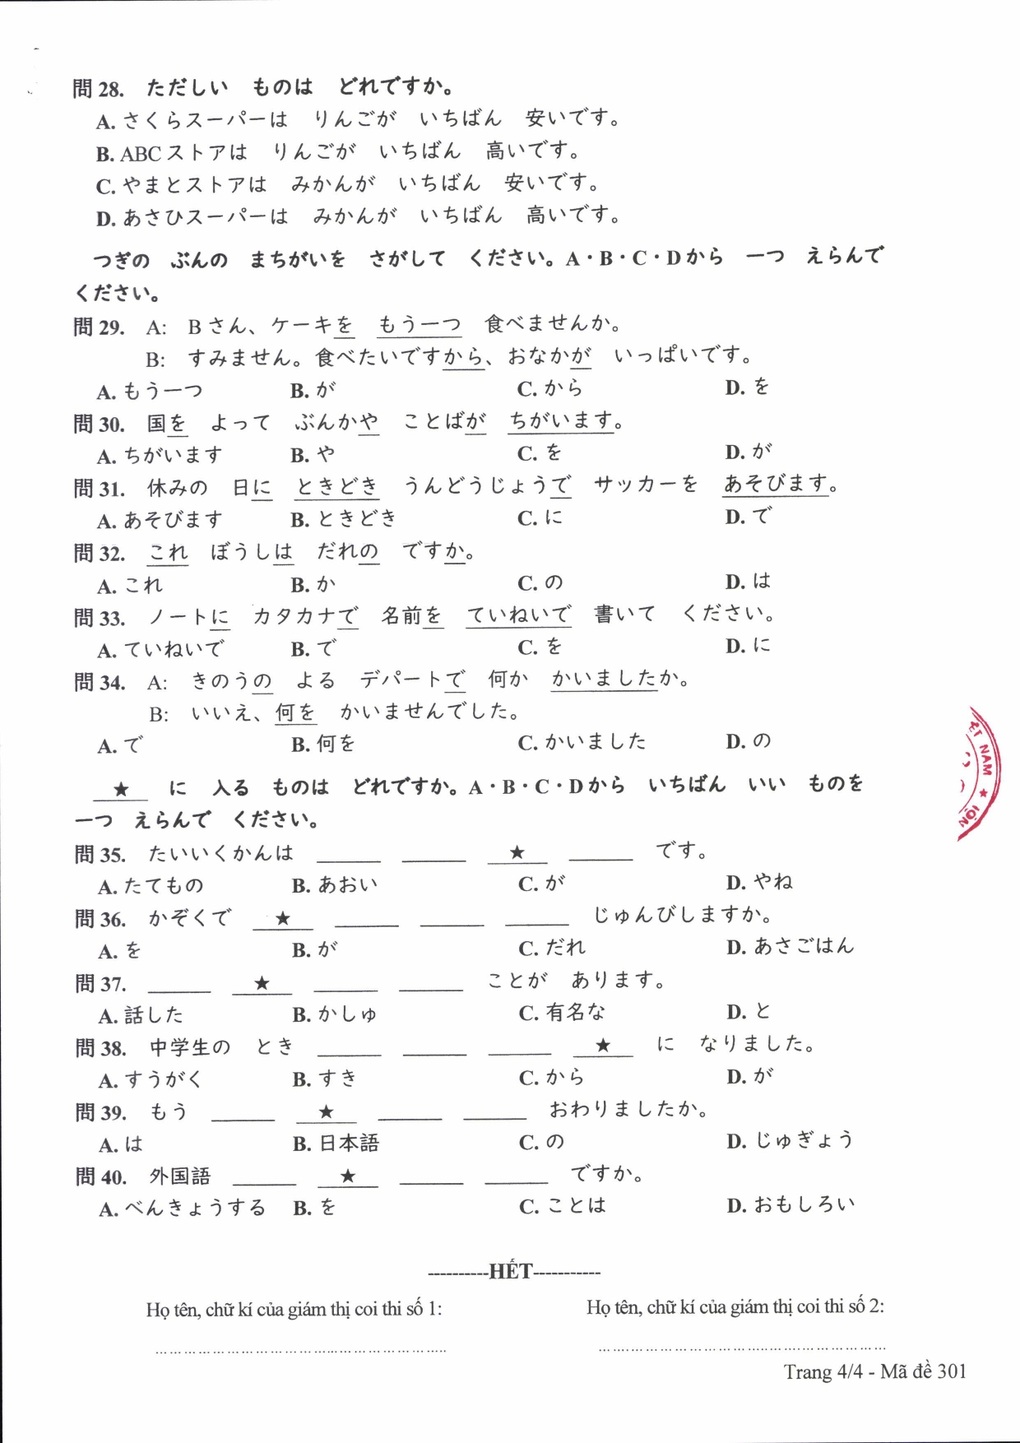 問 28. ただしい ものは どれですか。
A. さくらスーパーは りんごが いちばん 安いです。
B. ABC ストアは りんごが いちばん 高いです。
C. やまとストアは みかんが いちばん 安いです。
D. あさひスーパーは みかんが いちばん 高いです。
つぎの ぶんの まちがいを さがして ください。A・B・C・Dから 一つ えらんで
ください。
問 29. A: Bさん、ケーキを もう一つ 食べませんか。
B: すみません。食べたいですから、おなかが いっぱいです。
A. もう一つ B. が C. から D. を
問 30. 国を よって ぶんかや ことばが ちがいます。
A. ちがいます B. や C. を D. が
問 31. 休みの 日に ときどき うんどうじょうで サッカーを あそびます。
A. あそびます B. ときどき C. に D. で
問 32. これ ぼうしは だれの ですか。
A. これ B. か C. の D. は
問 33. ノートに カタカナで 名前を ていねいで 書いて ください。
A. ていねいで B. で C. を D. に
問 34. A: きのうの よる デパートで 何か かいましたか。
B: いいえ、何を かいませんでした。
A. で B. 何を C. かいました D. の
★ に 入る ものは どれですか。A・B・C・Dから いちばん いい ものを
一つ えらんで ください。
問 35. たいいくかんは ______ ______ ★ ______ です。
A. たてもの B. あおい C. が D. やね
問 36. かぞくで ★ ______ ______ ______ じゅんびしますか。
A. を B. が C. だれ D. あさごはん
問 37. ______ ★ ______ ______ ことが あります。
A. 話した B. かしゅ C. 有名な D. と
問 38. 中学生の とき ______ ______ ______ ★ に なりました。
A. すうがく B. すき C. から D. が
問 39. もう ______ ★ ______ ______ おわりましたか。
A. は B. 日本語 C. の D. じゅぎょう
問 40. 外国語 ______ ★ ______ ______ ですか。
A. べんきょうする B. を C. ことは D. おもしろい
----------HẾT-----------
Họ tên, chữ kí của giám thị coi thi số 1: Họ tên, chữ kí của giám thị coi thi số 2:
Trang 4/4 - Mã đề 301